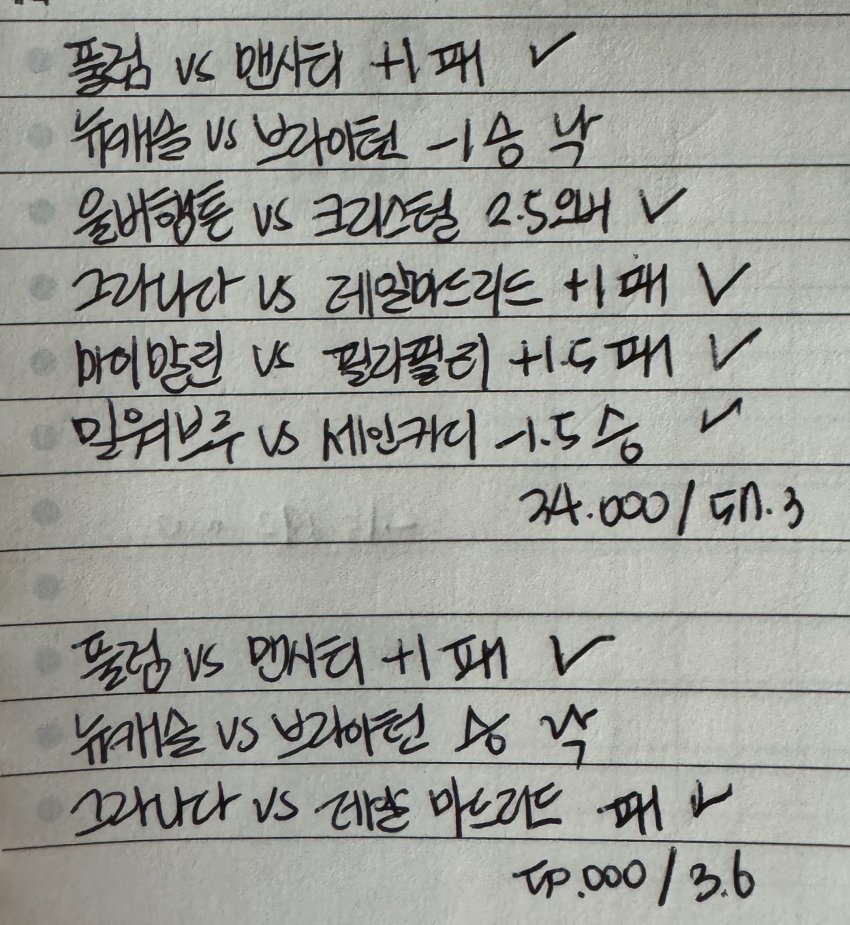 풀럼 vs 맨시티 +1 패 ✓
뉴캐슬 vs 브라이턴 -1 승 낙
울버햄튼 vs 크리스털 2.5 오버 ✓
그라나다 vs 레알마드리드 +1 패 ✓
마이말린 vs 필라필리 +1.5 패 ✓
밀워브루 vs 세인카디 -1.5 승 ✓
/ 57.3
풀럼 vs 맨시티 +1 패 ✓
뉴캐슬 vs 브라이턴 승 낙
그라나다 vs 레알 마드리드 패 ✓
/ 3.6